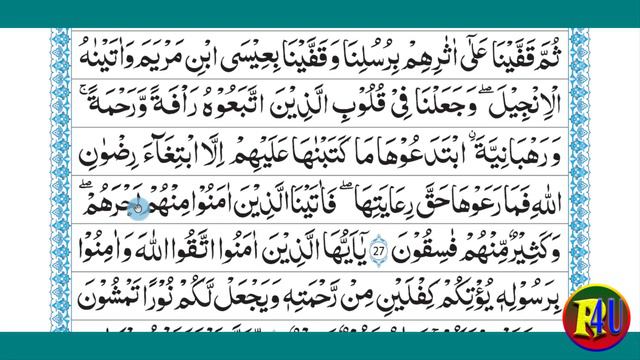 ثُمَّ قَفَّيْنَا عَلٰٓى اٰثَارِهِمْ بِرُسُلِنَا وَقَفَّيْنَا بِعِيْسَى ابْنِ مَرْيَمَ وَاٰتَيْنٰهُ
الْاِنْجِيْلَ ۙ وَجَعَلْنَا فِيْ قُلُوْبِ الَّذِيْنَ اتَّبَعُوْهُ رَاْفَةً وَّرَحْمَةً ؕ
وَرَهْبَانِيَّةَ ۨ ابْتَدَعُوْهَا مَا كَتَبْنٰهَا عَلَيْهِمْ اِلَّا ابْتِغَآءَ رِضْوَانِ
اللّٰهِ فَمَا رَعَوْهَا حَقَّ رِعَايَتِهَا ۚ فَاٰتَيْنَا الَّذِيْنَ اٰمَنُوْا مِنْهُمْ اَجْرَهُمْ ۚ
وَكَثِيْرٌ مِّنْهُمْ فٰسِقُوْنَ 27 يٰٓاَيُّهَا الَّذِيْنَ اٰمَنُوا اتَّقُوا اللّٰهَ وَاٰمِنُوْا
بِرَسُوْلِهٖ يُؤْتِكُمْ كِفْلَيْنِ مِنْ رَّحْمَتِهٖ وَيَجْعَلْ لَّكُمْ نُوْرًا تَمْشُوْنَ
P4U